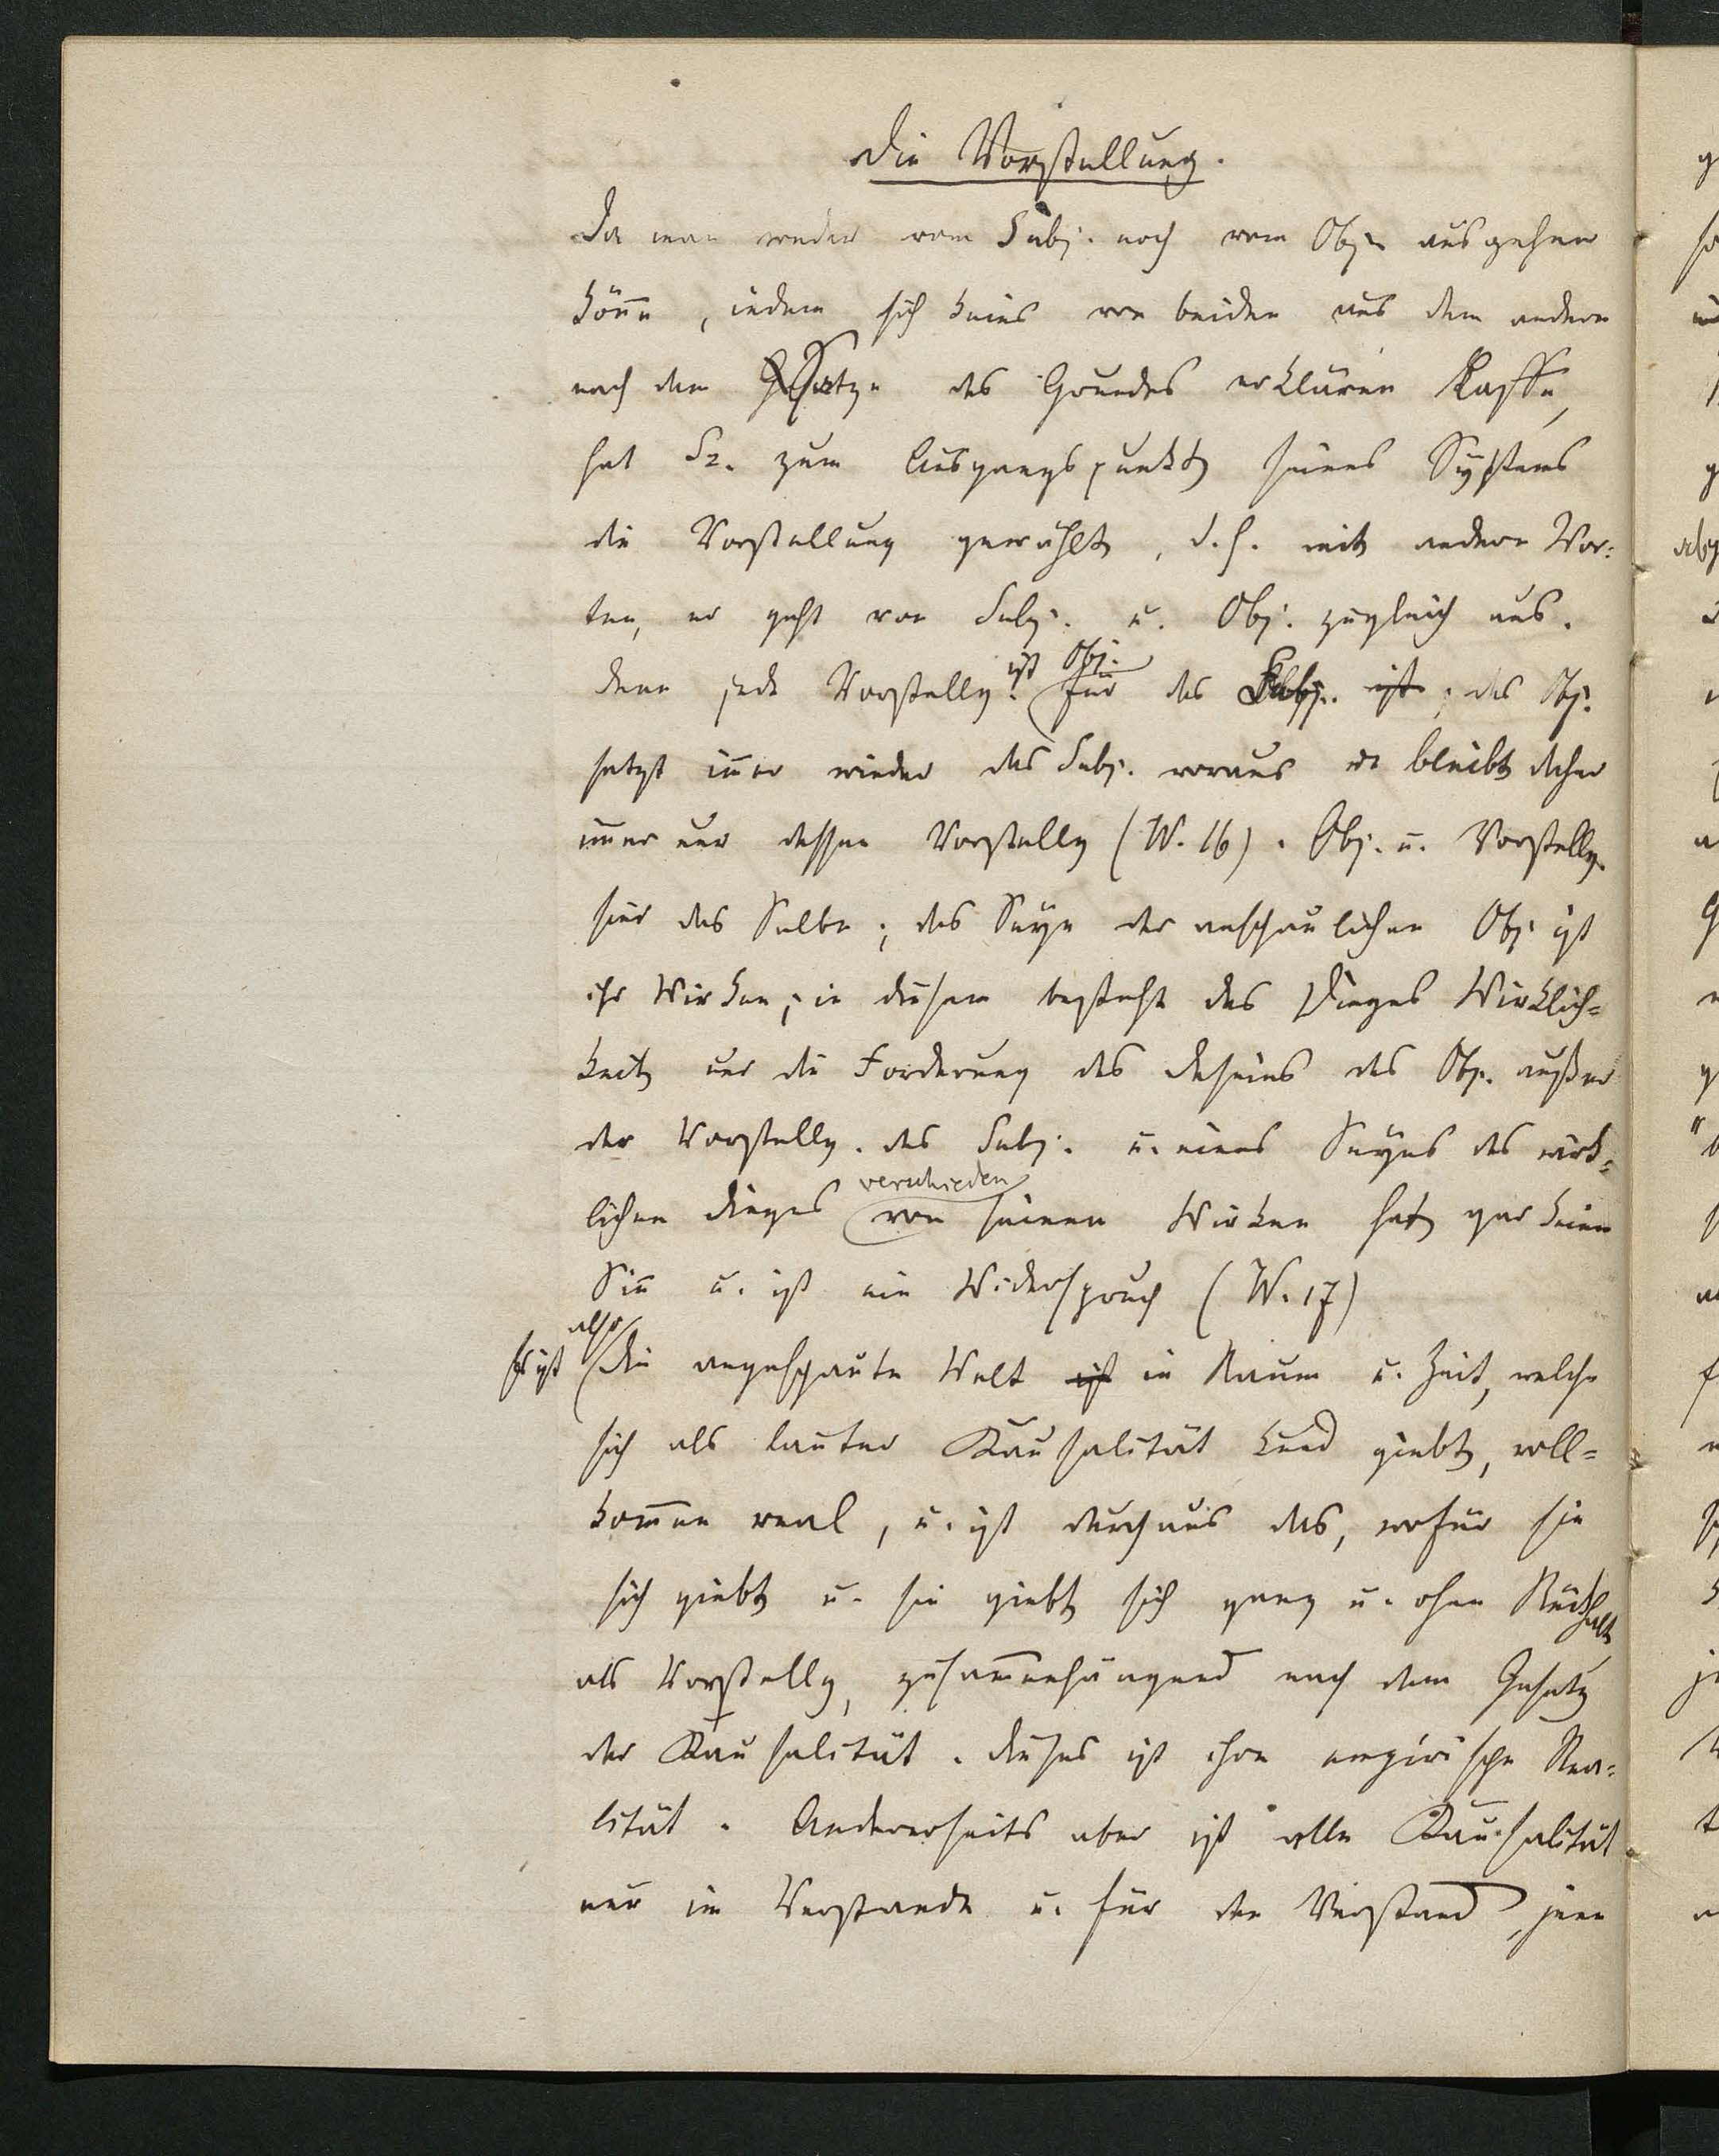 Die Vorstellung.
Da man weder vom Subj. noch vom Obj. ausgehen
könne, indem sich keins von beiden aus dem andern
nach dem Satze des Grundes erklären lasse,
hat Sz. zum Ausgangspunkt seines Systems
die Vorstellung gewählt, d.h. mit andern Wor-
ten, er geht von Subj. u. Obj. zugleich aus.
denn jede Vorstellg. ist Obj. für das Subj. ist; das Obj.
setzt im̄er wieder das Subj. voraus u. bleibt daher
im̄er nur dessen Vorstellg (W. 16). Obj. u. Vorstellg.
sind das Selbe; das Seyn der anschaulichen Obj. ist
ihr Wirken; in diesem besteht des Dinges Wirklich-
keit und die Forderung des Daseins des Obj. außer
der Vorstellg. des Subj. u. eines Seyns des wirk-
lichen Dinges verschieden von seinem Wirken hat gar keinen
Siñ u. ist ein Widerspruch (W. 17)
Es ist also die angeschaute Welt ist in Raum u. Zeit, welche
sich als lauter Kausalität kund giebt, voll-
kom̄en real, u. ist durchaus das, wofür sie
sich giebt u. sie giebt sich ganz u. ohne Rückhalt
als Vorstellg, zusam̄enhängend nach dem Gesetz
der Kausalität. Dieses ist ihre empirische Rea-
lität. Andererseits aber ist alle Kausalität
nur im Verstande u. für den Verstand, jene